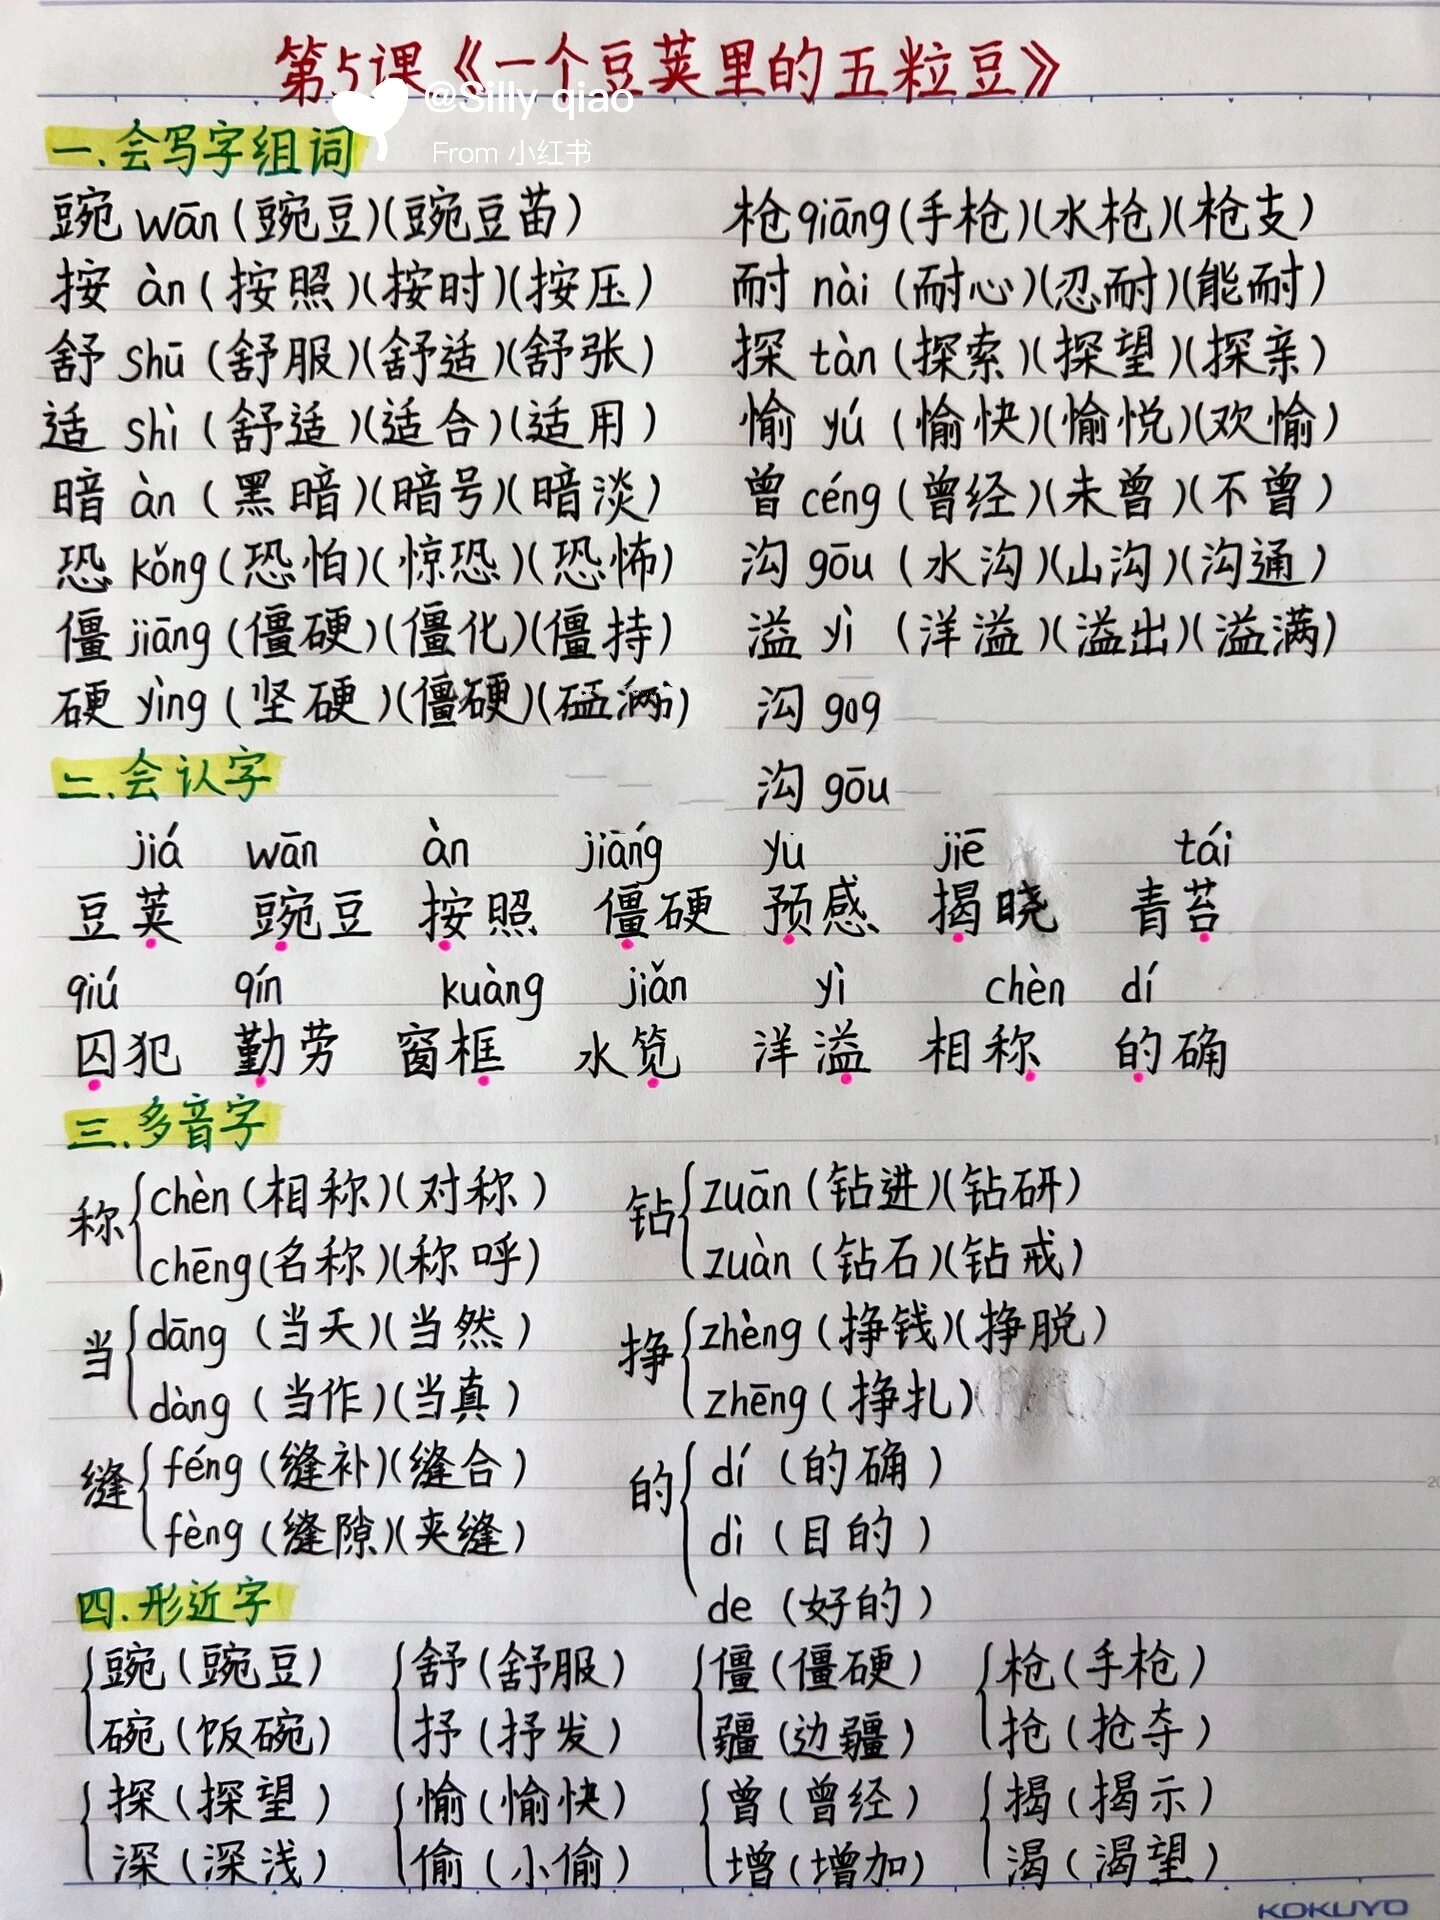 第5课《一个豆荚里的五粒豆》
@Silly qiao
From 小红书
一.会写字组词
豌 wān (豌豆)(豌豆苗)
枪 qiāng (手枪)(水枪)(枪支)
按 àn (按照)(按时)(按压)
耐 nài (耐心)(忍耐)(能耐)
舒 shū (舒服)(舒适)(舒张)
探 tàn (探索)(探望)(探亲)
适 shì (舒适)(适合)(适用)
愉 yú (愉快)(愉悦)(欢愉)
暗 àn (黑暗)(暗号)(暗淡)
曾 céng (曾经)(未曾)(不曾)
恐 kǒng (恐怕)(惊恐)(恐怖)
沟 gōu (水沟)(山沟)(沟通)
僵 jiāng (僵硬)(僵化)(僵持)
溢 yì (洋溢)(溢出)(溢满)
硬 yìng (坚硬)(僵硬)
沟 gog
沟 gōu
二.会认字
jiá wān àn jiāng yu jiē tái
豆荚 豌豆 按照 僵硬 预感 揭晓 青苔
qiú qín kuàng jiǎn yì chèn dí
囚犯 勤劳 窗框 水笕 洋溢 相称 的确
三.多音字
称 chèn (相称)(对称)
chēng (名称)(称呼)
钻 zuān (钻进)(钻研)
zuàn (钻石)(钻戒)
当 dāng (当天)(当然)
dàng (当作)(当真)
挣 zhèng (挣钱)(挣脱)
zhēng (挣扎)
缝 féng (缝补)(缝合)
fèng (缝隙)(夹缝)
的 dí (的确)
dì (目的)
de (好的)
四.形近字
豌 (豌豆) 舒 (舒服) 僵 (僵硬) 枪 (手枪)
碗 (饭碗) 抒 (抒发) 疆 (边疆) 抢 (抢夺)
探 (探望) 愉 (愉快) 曾 (曾经) 揭 (揭示)
深 (深浅) 偷 (小偷) 增 (增加) 渴 (渴望)
KOKUYO